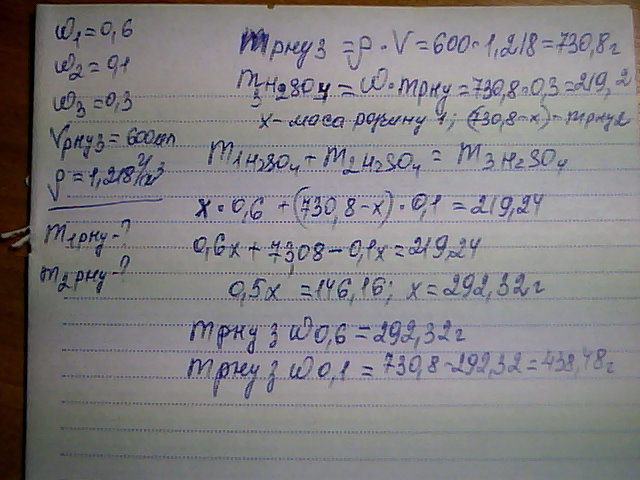 ω₁ = 0,6
ω₂ = 0,1
ω₃ = 0,3
Vрну3 = 600мл
ρ = 1,218 г/см³
m1рну - ?
m2рну - ?
mрну3 = ρ · V = 600 · 1,218 = 730,8 г
m3H₂SO₄ = ω · mрну = 730,8 · 0,3 = 219,2
x - маса розчину 1; (730,8 - x) - mрну2
m1H₂SO₄ + m2H₂SO₄ = m3H₂SO₄
x · 0,6 + (730,8 - x) · 0,1 = 219,24
0,6x + 73,08 - 0,1x = 219,24
0,5x = 146,16; x = 292,32 г
mрну з ω 0,6 = 292,32 г
mрну з ω 0,1 = 730,8 - 292,32 = 438,48 г